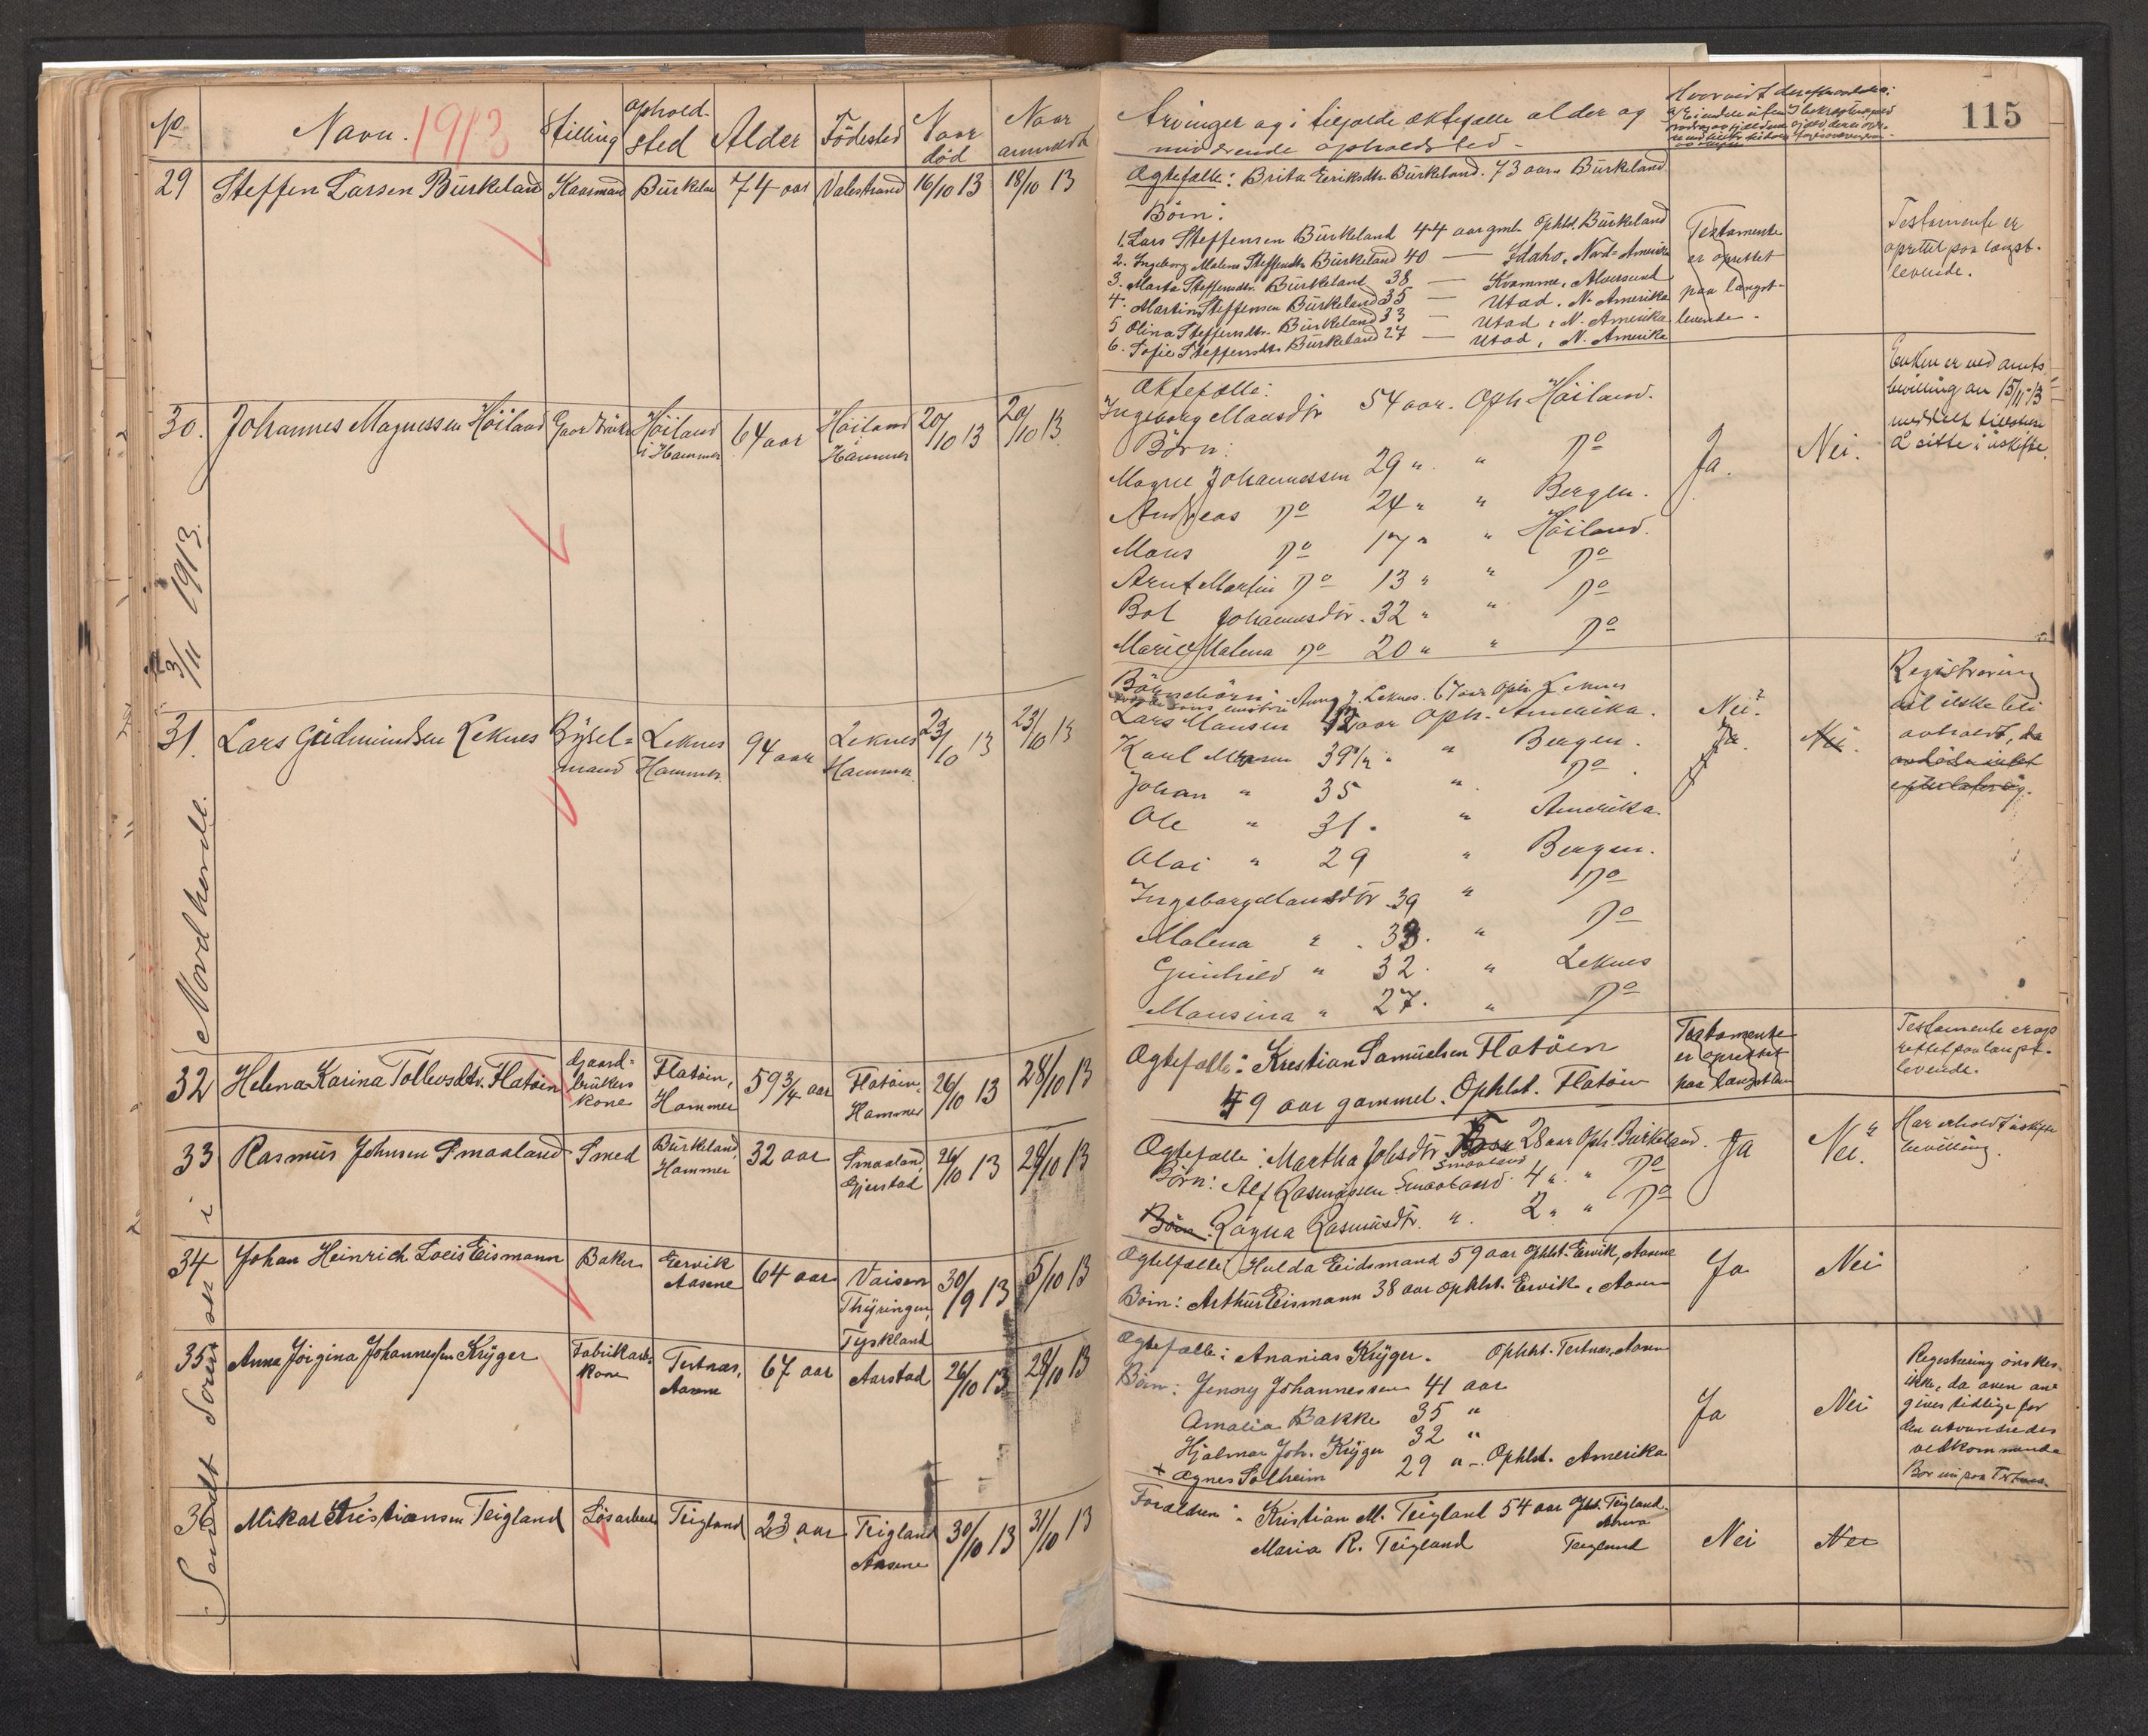 No Navn. 1913 Stilling Ophold-sted Alder Födested Naar död Naar anmeldt
Arvinger og i tilfælde ektefælle alder og
nuværende opholdsted -
115
29 Steffen Larsen Bürkeland Kaarmand Bürkelan 74 aar Valestrand 16/10 13 18/10 13
Ægtefælle: Brita Eeriksdtr. Bürkeland. 73 aar. Bürkeland
Börn:
1. Lars Steffensen Bürkeland 44 aar gml. Ophld. Bürkeland
2. Ingeborg Malene Steffensdtr Bürkeland 40 — Idaho, Nord-Amerika
3. Marta Steffensdtr. Bürkeland 38 — Kvamme, Alversund
4. Martin Steffensen Bürkeland 35 — Utad. N. Amerika
5 Olina Steffensdtr. Bürkeland 33 — Utad, N. Amerika
6. Sofie Steffensdtr Bürkeland 27 — Utad, N. Amerika
Testamente
er oprettet
paa længst-
levende.
Testamente er
oprettet paa længst-
levende.
30. Johannes Magnessen Höiland Gaardbruker Höiland i Hammer 64 aar Höiland i Hammer 20/10 13 20/10 13
Ektefælle:
Ingeborg Mansdtr 54 aar. Oph Höiland.
Börn:
Magne Johannessen 29 " " Do
Andreas Do 24 " " Bergen.
Mons Do 17 " " Höiland.
Arnt Martin Do 13 " " Do
Bol Johannesdtr. 32 " " Do
Marie Malena Do 20 " " Do
Ja.
Nei.
Enken er ved amts
bevilling av 15/11-13
meddelt tilladelse
å sitte i uskifte.
31. Lars Gudmundsen Leknes Bygselmand Leknes Hammer 94 aar Leknes Hammer 23/10 13 23/10 13
Börnebörn:
Anna J. Leknes. 67 aar Oph. Leknes
Lars Mansen 42 aar Oph. Amerika.
Karl Mansen 39 1/2 " " Bergen.
Johan " 35 " Do
Ole " 31 " Amerika.
Olai " 29 " Bergen.
Ingeborg Mansdtr 39 " Do
Malena " 33. " Do
Gunhild " 32. " Leknes
Mansina " 27. " Do
Nei.
Ja.
Nei.
Registrering
vil ikke bli
avholdt, da
32 Helena Karina Tollevsdtr. Flatöen Gaardbrukers kone Flatöen, Hammer 59 3/4 aar Flatöen, Hammer 26/10 13 28/10 13
Ægtefælle: Krestian Samuelsen Flatöen
49 aar gammel. Ophlst. Flatöen
Testamente
er oprettet
paa længstlev
Testamente er op
rettet paa længst-
levende.
33 Rasmus Johnsen Smaaland Smed Bürkeland, Hammer 32 aar Smaaland, Gjerstad 26/10 13 28/10 13
Ægtefælle: Martha Johsdtr 28 aar Oph. Burkeland.
Smaaland
Börn: Alf Rasmussen Smaaland 4 " " Do
Börn: Ragna Rasmusdtr. " 2 " " Do
Ja
Nei.
Har erholdt uskifte
bevilling.
34 Johan Heinrich Loeis Eismann Baker Eervik Aasene 64 aar Vaisen Thyringen, Tyskland 30/9 13 5/10 13
Ægtefælle: Hulda Eidsmand 59 aar Ophlst. Ervik, Aasene
Börn: Arthur Eismann 38 aar Ophlst. Ervik, Aasen
Ja
Nei
35 Anna Jörgina Johannessen Kryger Fabrikarb. kone Tertnæs, Aasene 67 aar Aarstad 26/10 13 28/10 13
Ægtefælle: Ananias Kryger. Ophlst. Tertnes, Aasen
Börn: Jenny Johannessen 41 aar
Amalia Bakke 35 "
Hjalmar Joh. Kryger 32 "
+ Agnes Solheim 29 " - Ophlst. Amerika
Ja
Nei
Regestrering önskes
ikke, da aven an
gives tidlige for
den utvandredes
vedkommende
Bor nu paa Tertnes
36 Mikal Kristiansen Teigland Lösarbeid Teigland 23 aar Teigland Aasene 30/10 13 31/10 13
Forældre: Kristian M. Teigland 54 aar Ophl. Teigland
Maria R. Teigland Teigland
Nei
Nei
Sendt Soren i Nordhordl. 3/11 1913.